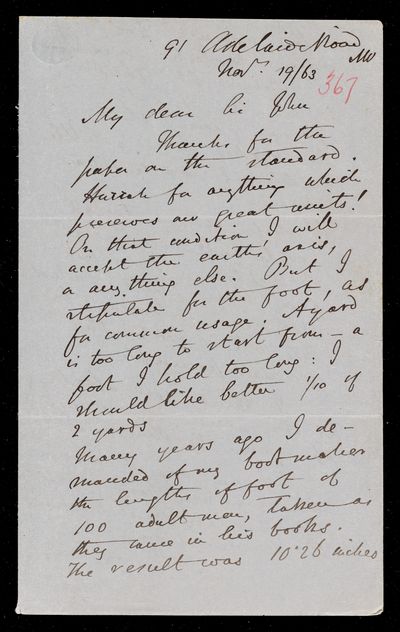 91 Adelaide Road
NW
Novr. 19/63
367
My dear Sir John
Thanks for the
paper on the standard.
Hurrah for anything which
preserves our great units!
On that condition I will
accept the earth's axis,
or any thing else. But I
stipulate for the foot, as
for common usage. A yard
is too long to start from – a
foot I hold too long: I
should like better 1/10 of
2 yards
Many years ago I de-
manded of my bootmaker
the lengths of foot of
100 adult men, taken as
they came in his books.
The result was 10.26 inches